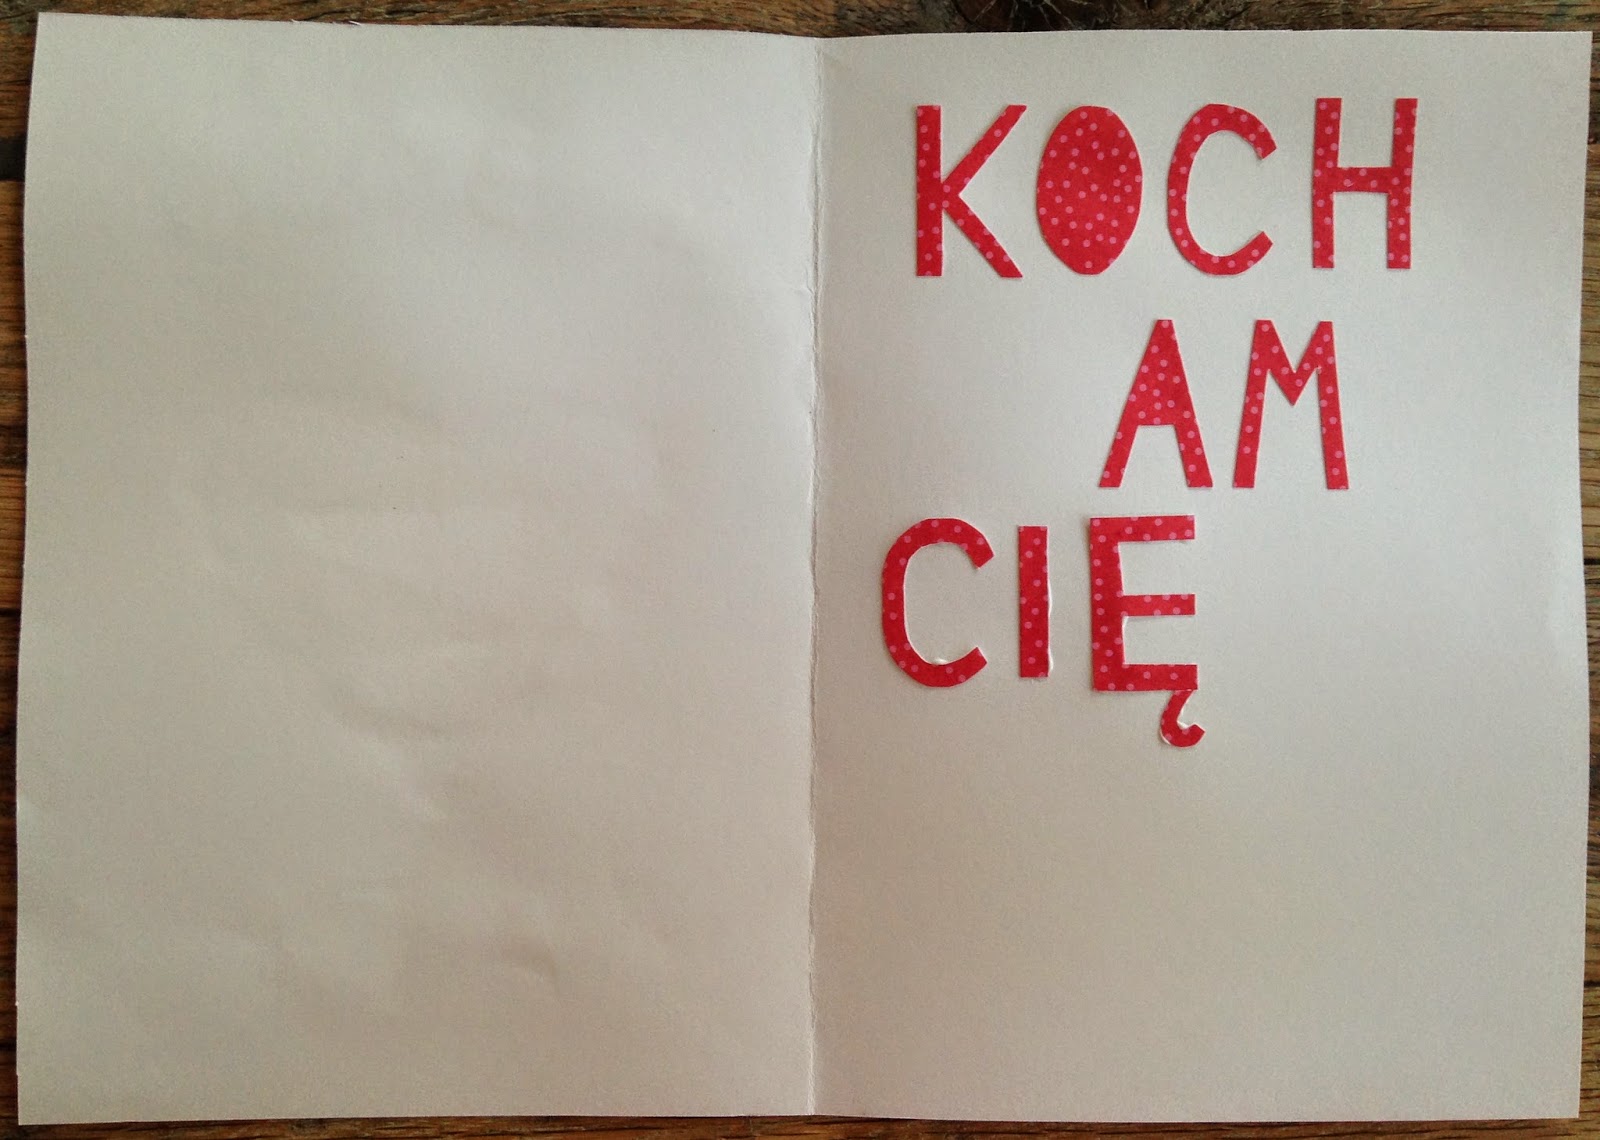 KOCH
AM
CIĘ